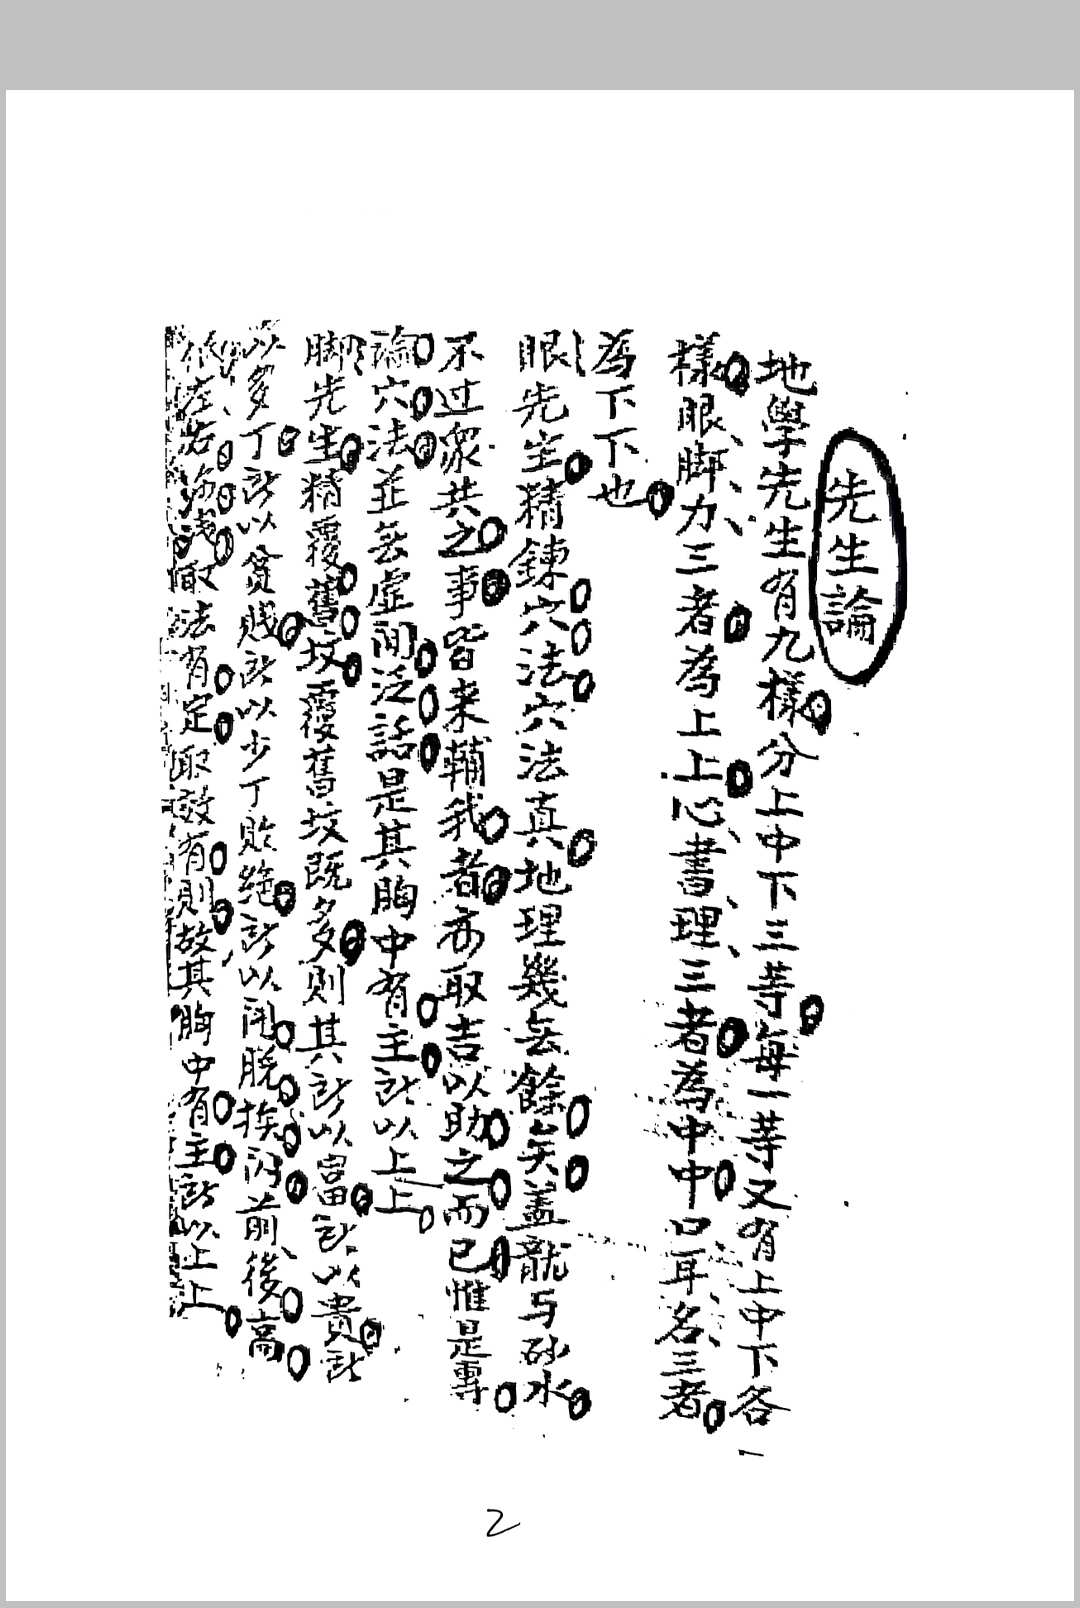 先生論
地學先生有九樣分上中下三等每一等又有上中下各一
樣眼脚力三者為上上心書理三者為中中口耳名三者
為下下也
眼先生精鍊穴法穴法真地理幾無餘矣蓋龍与砂水
不过衆共之事皆来輔我者亦取吉以助之而已惟是專
論穴法並無虛闲泛話是其胸中有主所以上上
脚先生精覆舊坟覆舊坟既多則其所以富所以貴所
以多丁所以貧賤所以少丁敗絶所以前後高
低左右深淺取法有定取效有則故其胸中有主所以上上
2